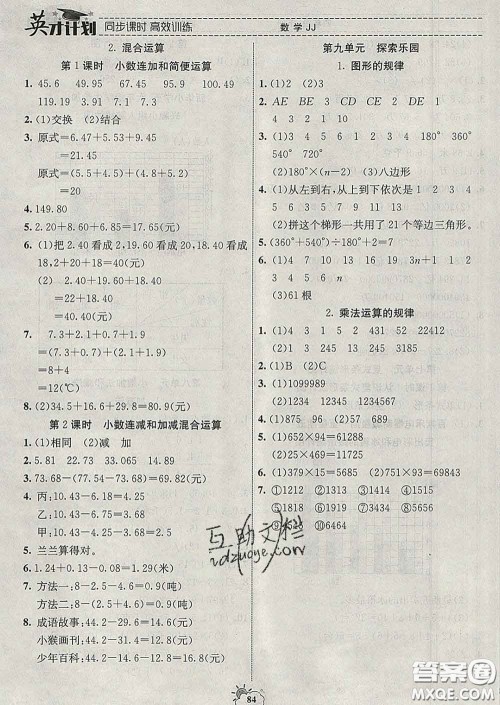 英才计划 同步课时 高效训练
数学 JJ
2. 混合运算
第1课时 小数连加和简便运算
1. 45.6 49.95 67.5 65.96 150.9 100
119.19 3.91 16.93
2. (1)交换 (2)结合
3. 原式=6.47+5.53+9.45
=21.45
原式=(5.5+4.5)+(4.8+5.2)
=20
4. 149.80
5. 2.20+8.60+6.85=17.65(元)
6. (1)把 2.40 看成 2,18.40 看成 18,20 看成 20,
18+2+20=40(元)
(2) 2.40+18.40+19.60
=22+18.40
=40.40(元)
7. 7.3+2.1+0.7+1.9
=7.3+0.7+2.1+1.9
=8+4
=12(℃)
8. (2)34.4+16.6+29.8=80.8(元)
第2课时 小数连减和加减混合运算
1. (1)相同 (2)减 加
2. 5.81 23.73 33.065 14.89
3. 73.68-(73.68-54.98)=54.98(元)
4. 丙:10.43-6.18=4.25
乙:10.43-6.83=3.6
甲:10.43-4.25-3.6=2.58
5. 兰兰算得对。
6. 1.24+0.13-0.08=1.29(米)
7. 方法一:24-8-7.1=8.9(吨)
方法二:24-(8+7.1)=8.9(吨)
8. 成语故事:44.2-29.8=14.4(元)
小猴画刊:44.2-31.6=12.6(元)
少年百科:44.2-14.4-12.6=17.2(元)
第九单元 探索乐园
1. 图形的规律
1. (1)2 (2)3
2. AE BE 3 CD CE DE 2 DE 1
3. (1)3 4 5 6 7 1 2 3 4 180° 360°
540° 720°
(2)180°×(n-2) (3)八边形
4. (1)从左到右,从上到下依次是 1 2 3 4
5 6 3 5 7 9 11 13
(2)拼这个梯形一共用了 21 个等边三角形。
5. (360°+540°)÷180°+2=7
6. (1)4 7 10 13 16 3n+1 (2)1 2
3 4 5 6 n
(3)61 根
2. 乘法运算的规律
1. (1)4 3 1 5 2 431 52 22412
(2)1 3 2 4 5 132 45 5940
2. (1)B (2)C
3. (1)1099989
4. (1)875 96 (2)57 689
5. (1)652×94=61288
6. (1)279×54=15066
7. ①1212 ②1313 ③1414 ④1515
⑤1616 ⑥1818 ⑦2323 ⑧3434
⑩6464
互助文档
84
答案圈
MXQE.COM